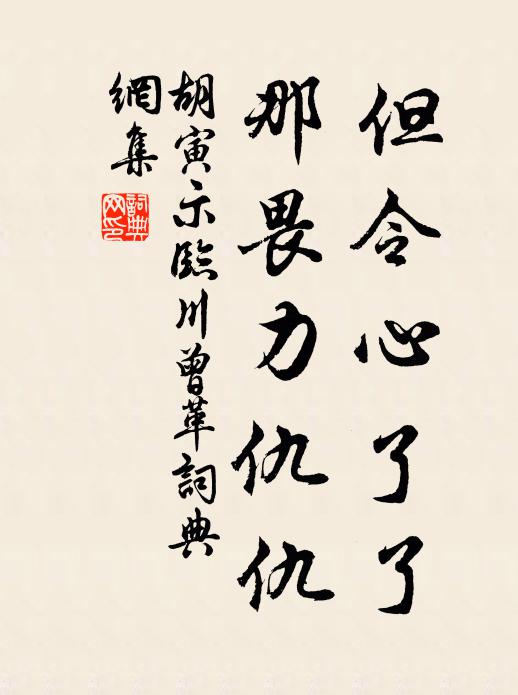 但令心了了
那畏力仇仇
胡寅示臨川曾革詞典
網集
詞典
网印